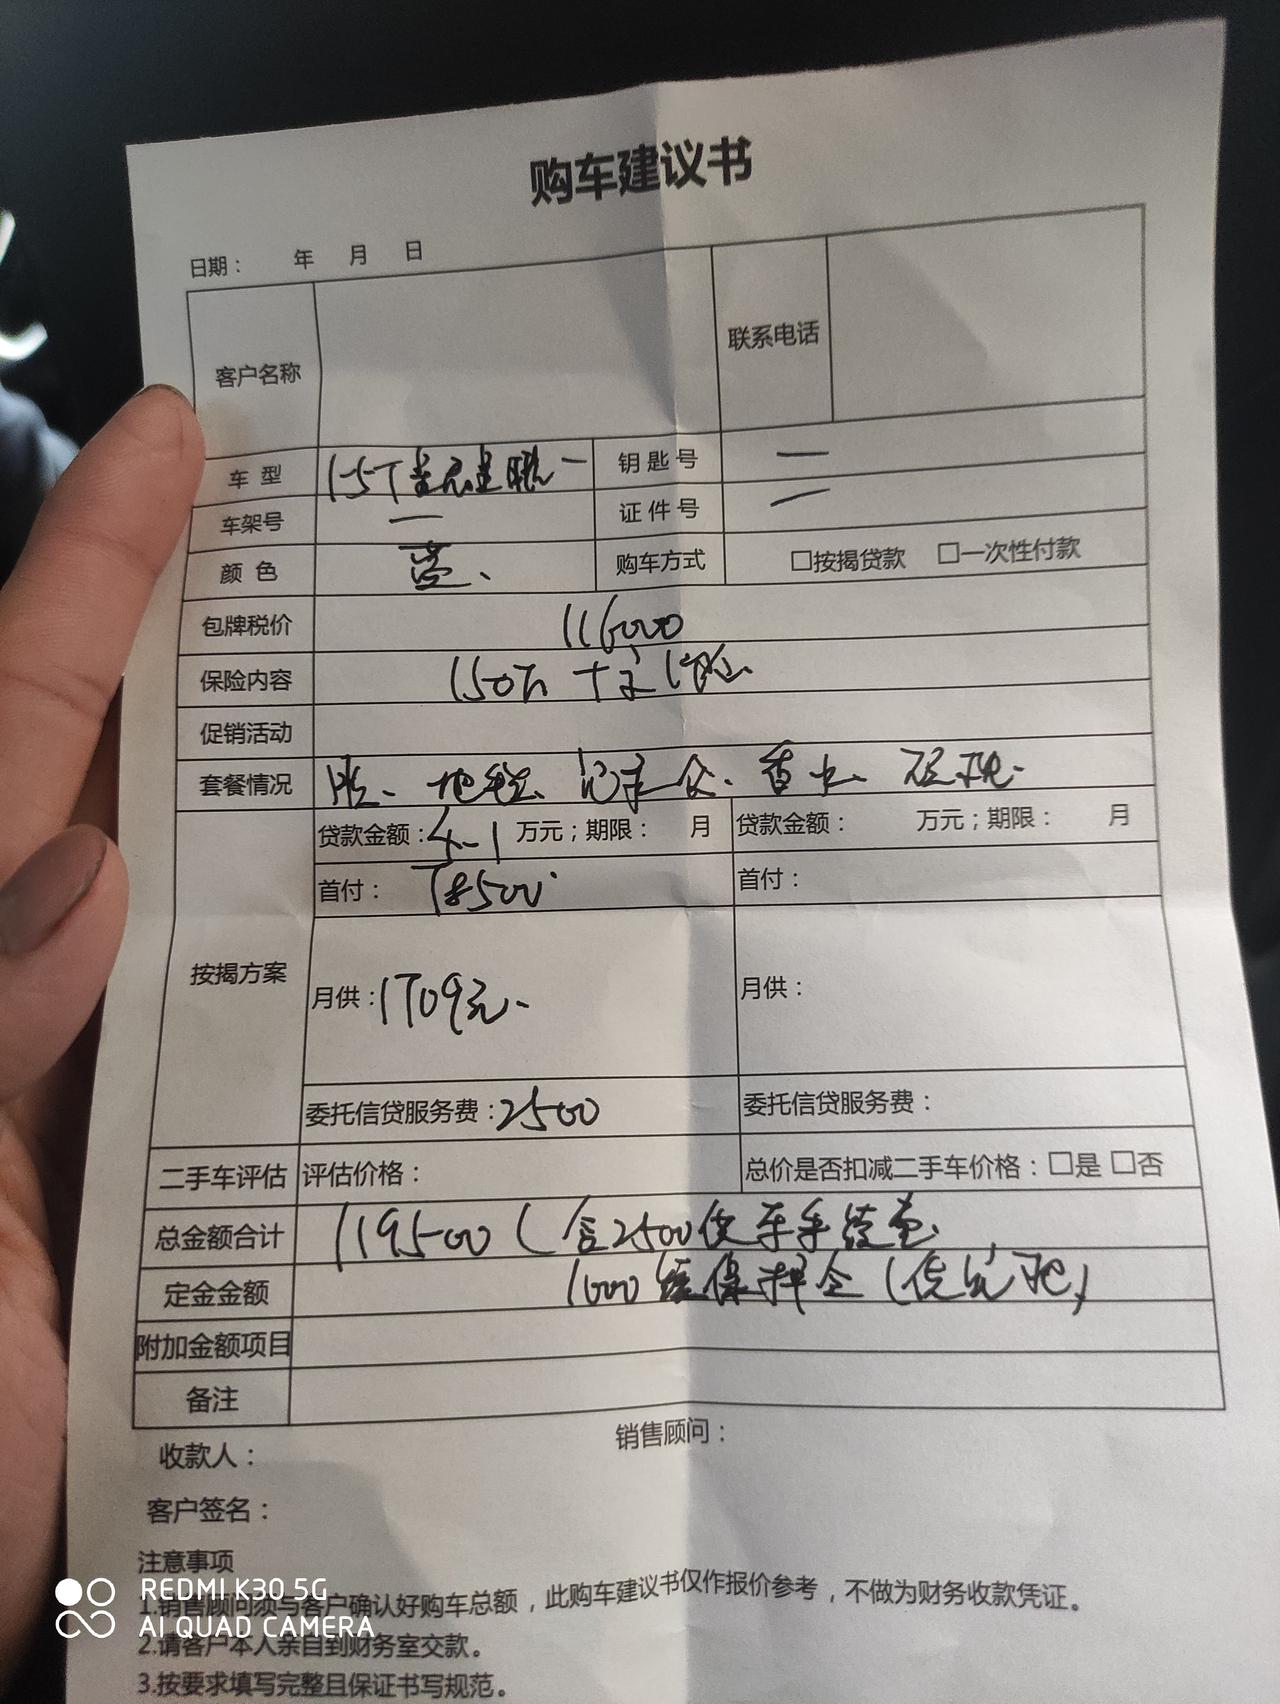 购车建议书
日期： 年 月 日
客户名称 联系电话
车型 1.5T 钥匙号 一
车架号 一 证件号 一
颜色 蓝、 购车方式 □按揭贷款 □一次性付款
包牌税价 116000
保险内容 150万+
促销活动
套餐情况 膜、地毯、记录仪、香水、
按揭方案 贷款金额：4.1 万元；期限： 月 贷款金额： 万元；期限： 月
首付：78500 首付：
月供：1709元、 月供：
委托信贷服务费：2500 委托信贷服务费：
二手车评估 评估价格： 总价是否扣减二手车价格：□是 □否
总金额合计 119500（含2500
定金金额 1000续保押金（
附加金额项目
备注
收款人： 销售顾问：
客户签名：
注意事项
1.销售顾问须与客户确认好购车总额，此购车建议书仅作报价参考，不做为财务收款凭证。
2.请客户本人亲自到财务室交款。
3.按要求填写完整且保证书写规范。
REDMI K30 5G
AI QUAD CAMERA